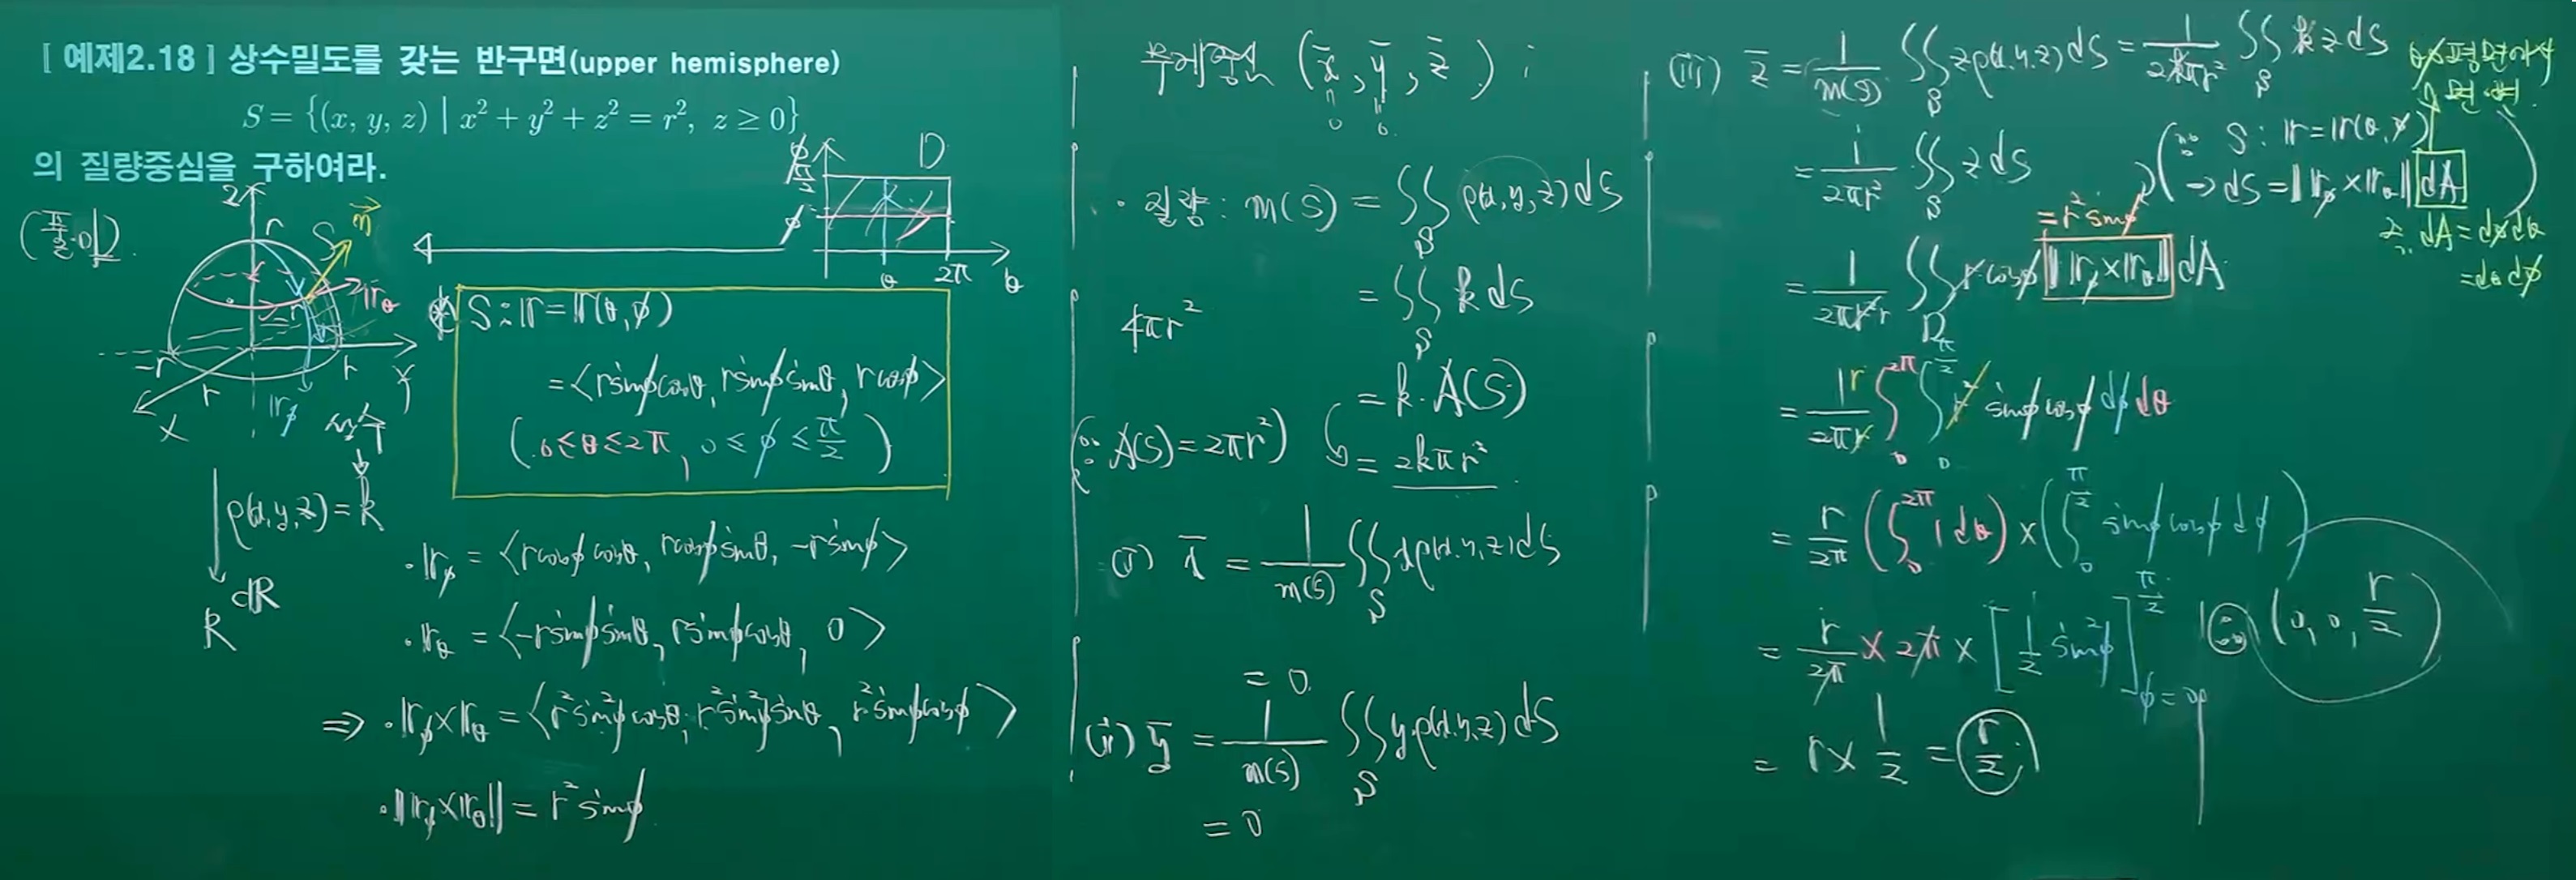 [ 예제2.18 ] 상수밀도를 갖는 반구면(upper hemisphere)
S = {(x, y, z) | x² + y² + z² = r², z ≥ 0}
의 질량중심을 구하여라.
z
r
S
n⃗
𝕣θ
-r
r
r
y
x
𝕣φ
상수
↓
ρ(x,y,z) = k
dR
R
φ
π/2
D
φ
θ
2π
θ
S : 𝕣 = 𝕣(θ, φ)
= <r sinφ cosθ, r sinφ sinθ, r cosφ>
(0 ≤ θ ≤ 2π, 0 ≤ φ ≤ π/2)
· 𝕣φ = <r cosφ cosθ, r cosφ sinθ, -r sinφ>
· 𝕣θ = <-r sinφ sinθ, r sinφ cosθ, 0>
⇒ · 𝕣φ × 𝕣θ = <r² sin²φ cosθ, r² sin²φ sinθ, r² sinφ cosφ>
· ‖𝕣φ × 𝕣θ‖ = r² sinφ
무게중심 (x̄, ȳ, z̄) ;
0 0
· 질량 : m(S) = ∬_S ρ(x,y,z) dS
= ∬_S k dS
4πr²
= k · A(S)
(∵ A(S) = 2πr²)
= 2kπr²
(i) x̄ = 1/m(S) ∬_S xρ(x,y,z) dS
= 0.
(ii) ȳ = 1/m(S) ∬_S yρ(x,y,z) dS
= 0
(iii) z̄ = 1/m(S) ∬_S zρ(x,y,z) dS = 1/2kπr² ∬_S kz dS
= 1/2πr² ∬_S z dS
(∵ S : 𝕣 = 𝕣(θ, φ)
→ dS = ‖𝕣φ × 𝕣θ‖ dA)
dA = dφdθ
= dθdφ
= r² sinφ
= 1/2πr² ∬_D r cosφ ‖𝕣φ × 𝕣θ‖ dA
= 1/2πr ∫₀^2π ∫₀^π/2 r² sinφ cosφ dφ dθ
= r/2π (∫₀^2π 1 dθ) × (∫₀^π/2 sinφ cosφ dφ)
= r/2π × 2π × [1/2 sin²φ]_φ=0^π/2
∴ (0, 0, r/2)
= r × 1/2 = r/2